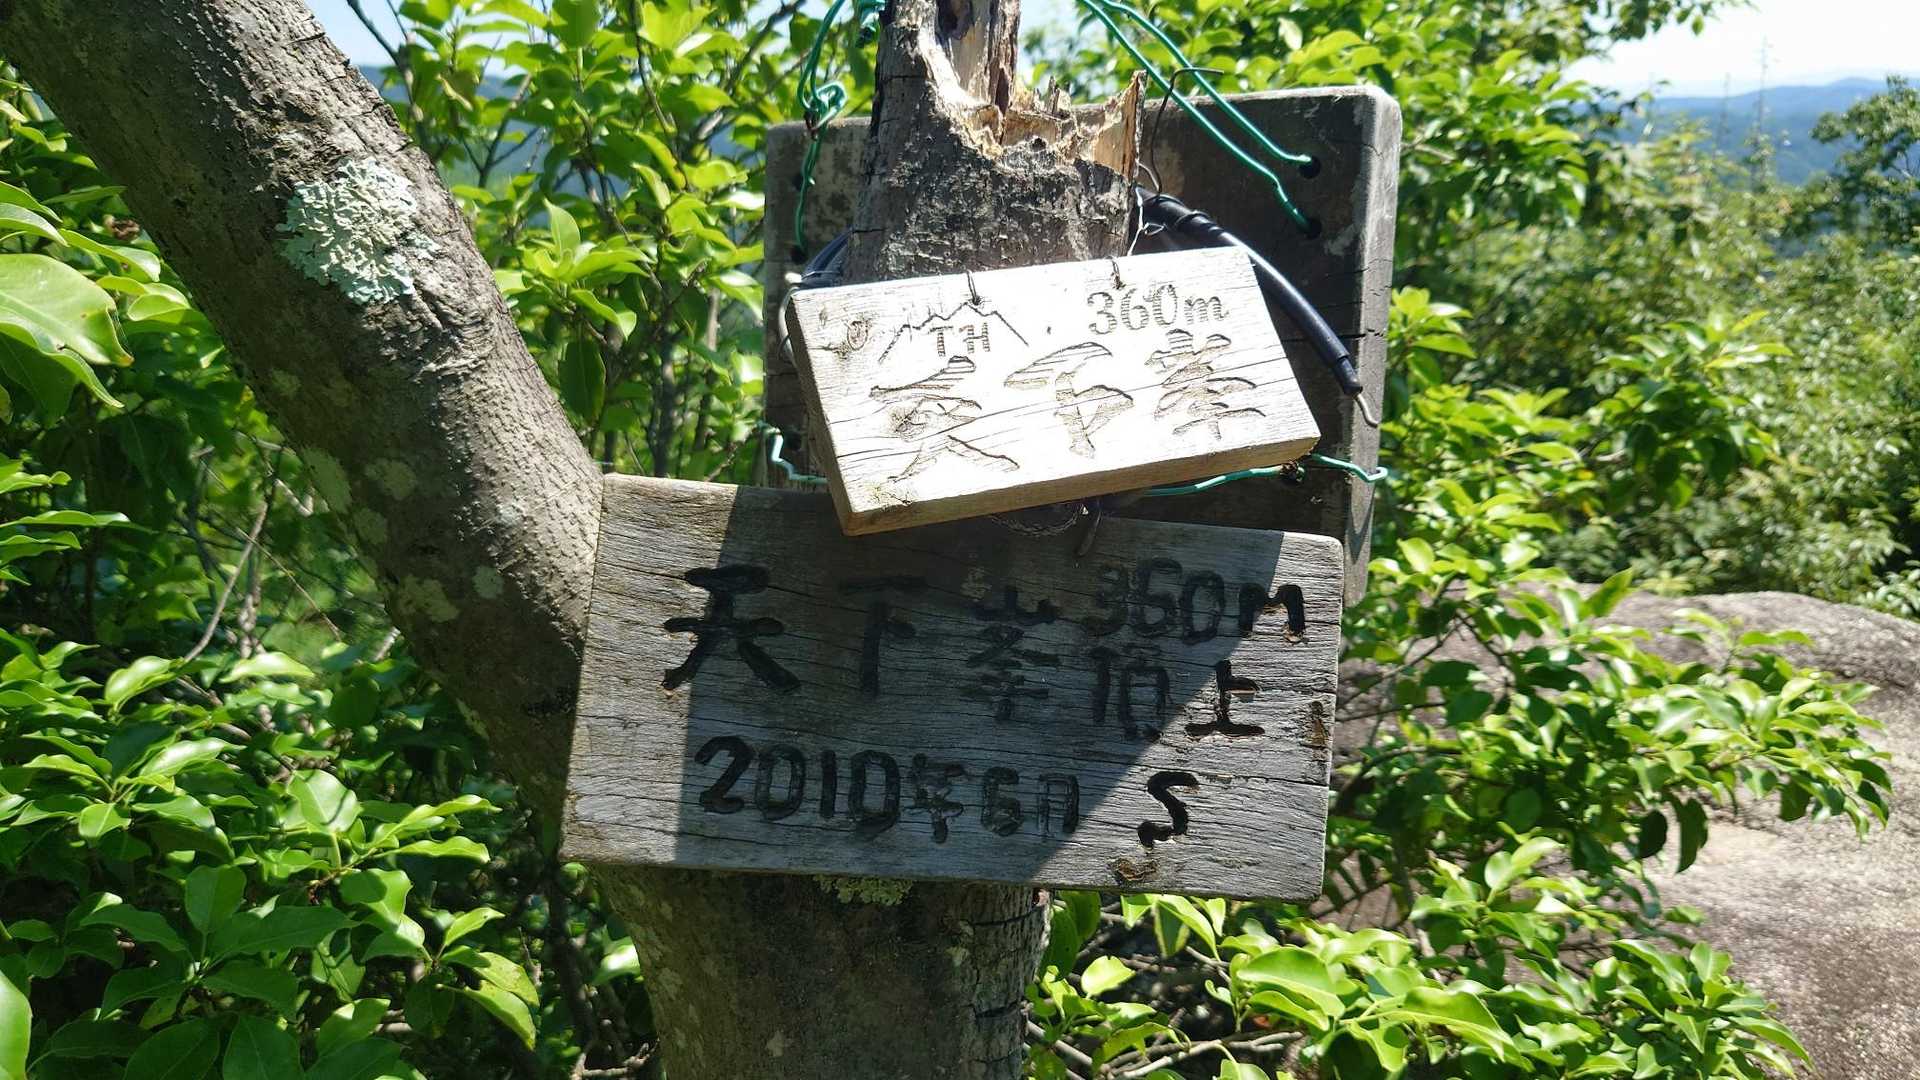 TH 360m
天下峯
天下峯 360m
頂上
2010年6月 S